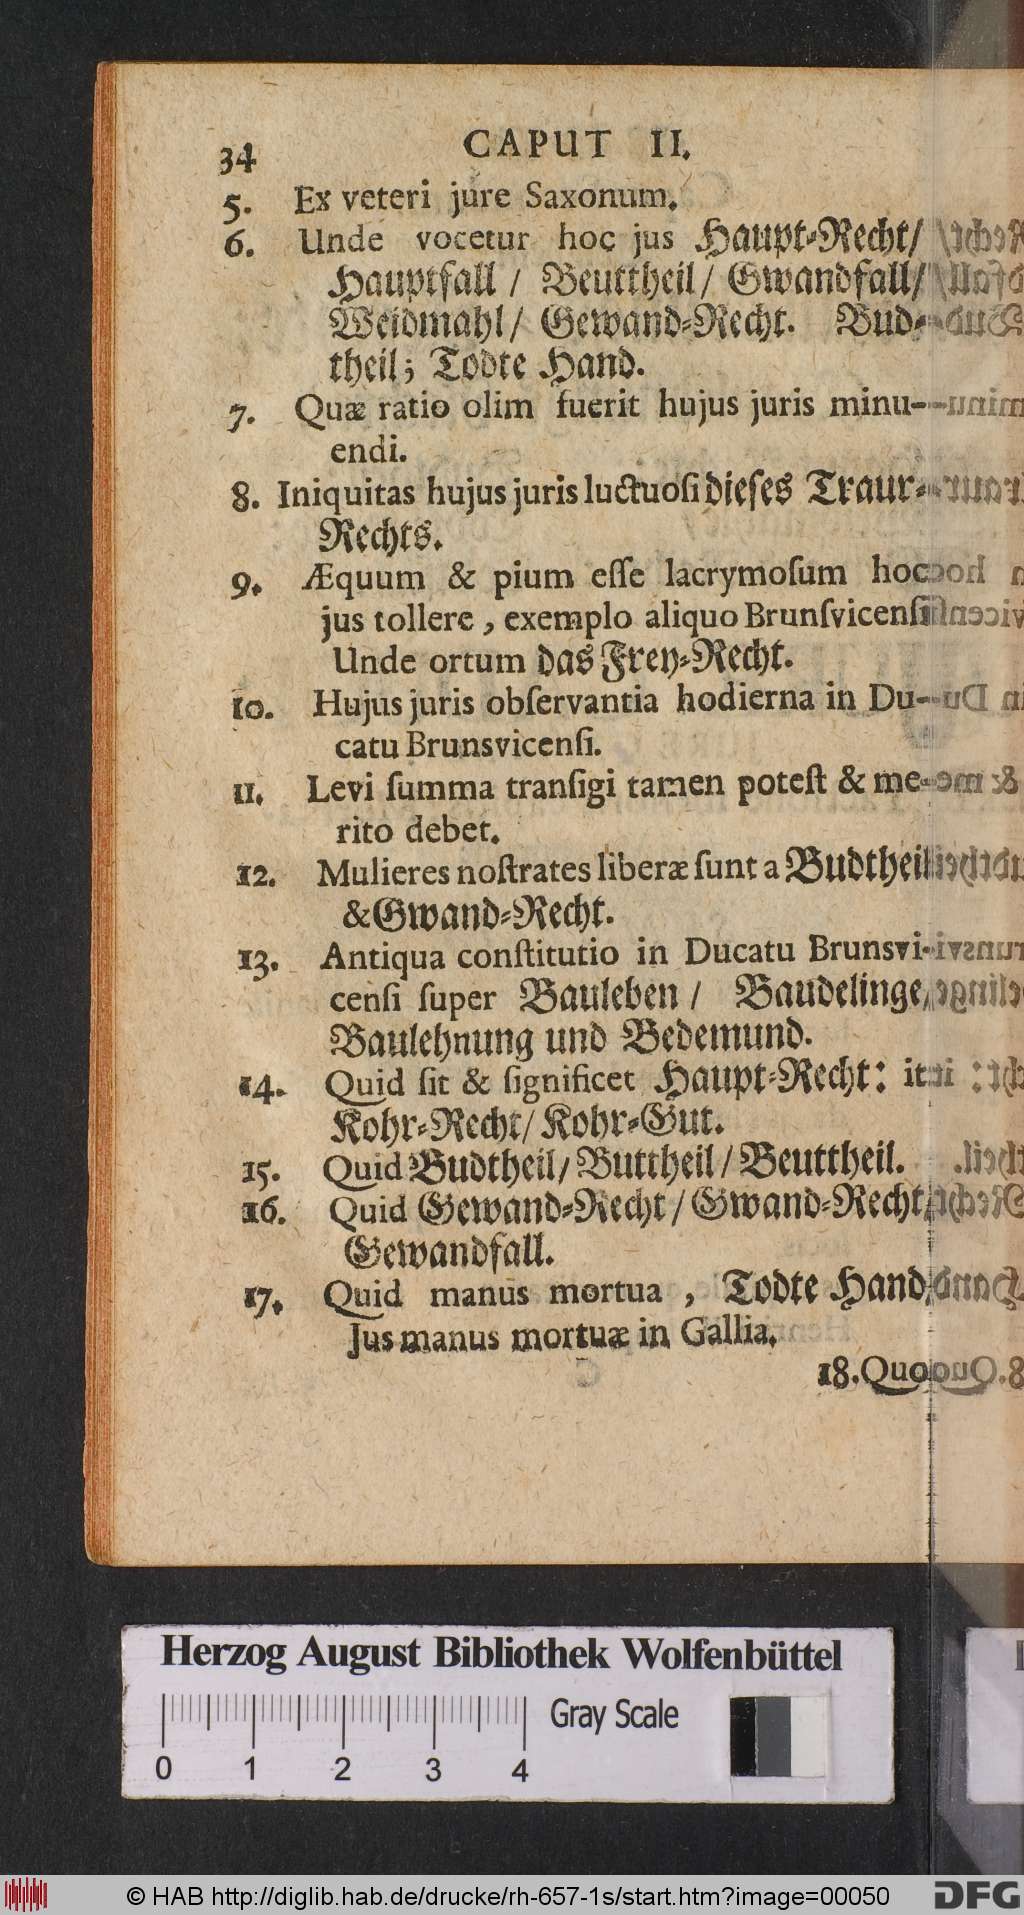 34 CAPUT II.
5. Ex veteri jure Saxonum.
6. Unde vocetur hoc jus Haupt-Recht/
Hauptfall / Beuttheil / Gwandfall/
Weidmahl / Gewand-Recht. Bud-
theil; Todte Hand.
7. Quæ ratio olim fuerit hujus juris minu-
endi.
8. Iniquitas hujus juris luctuoſi dieſes Traur-
Rechts.
9. Æquum & pium eſſe lacrymoſum hoc
jus tollere, exemplo aliquo Brunſvicenſi
Unde ortum das Frey-Recht.
10. Hujus juris obſervantia hodierna in Du-
catu Brunsvicenſi.
11. Levi ſumma tranſigi tamen poteſt & me-
rito debet.
12. Mulieres noſtrates liberæ ſunt a Budtheil
& Gwand-Recht.
13. Antiqua conſtitutio in Ducatu Brunsvi-
cenſi ſuper Bauleben / Baudelinge,
Baulehnung und Bedemund.
14. Quid ſit & ſignificet Haupt-Recht: it
Kohr-Recht / Kohr-Gut.
15. Quid Budtheil / Buttheil / Beuttheil.
16. Quid Gewand-Recht / Gwand-Recht,
Gewandfall.
17. Quid manus mortua, Todte Hand,
Jus manus mortuæ in Gallia.
18. Quo
Herzog August Bibliothek Wolfenbüttel
Gray Scale
0 1 2 3 4
© HAB http://diglib.hab.de/drucke/rh-657-1s/start.htm?image=00050
DFG